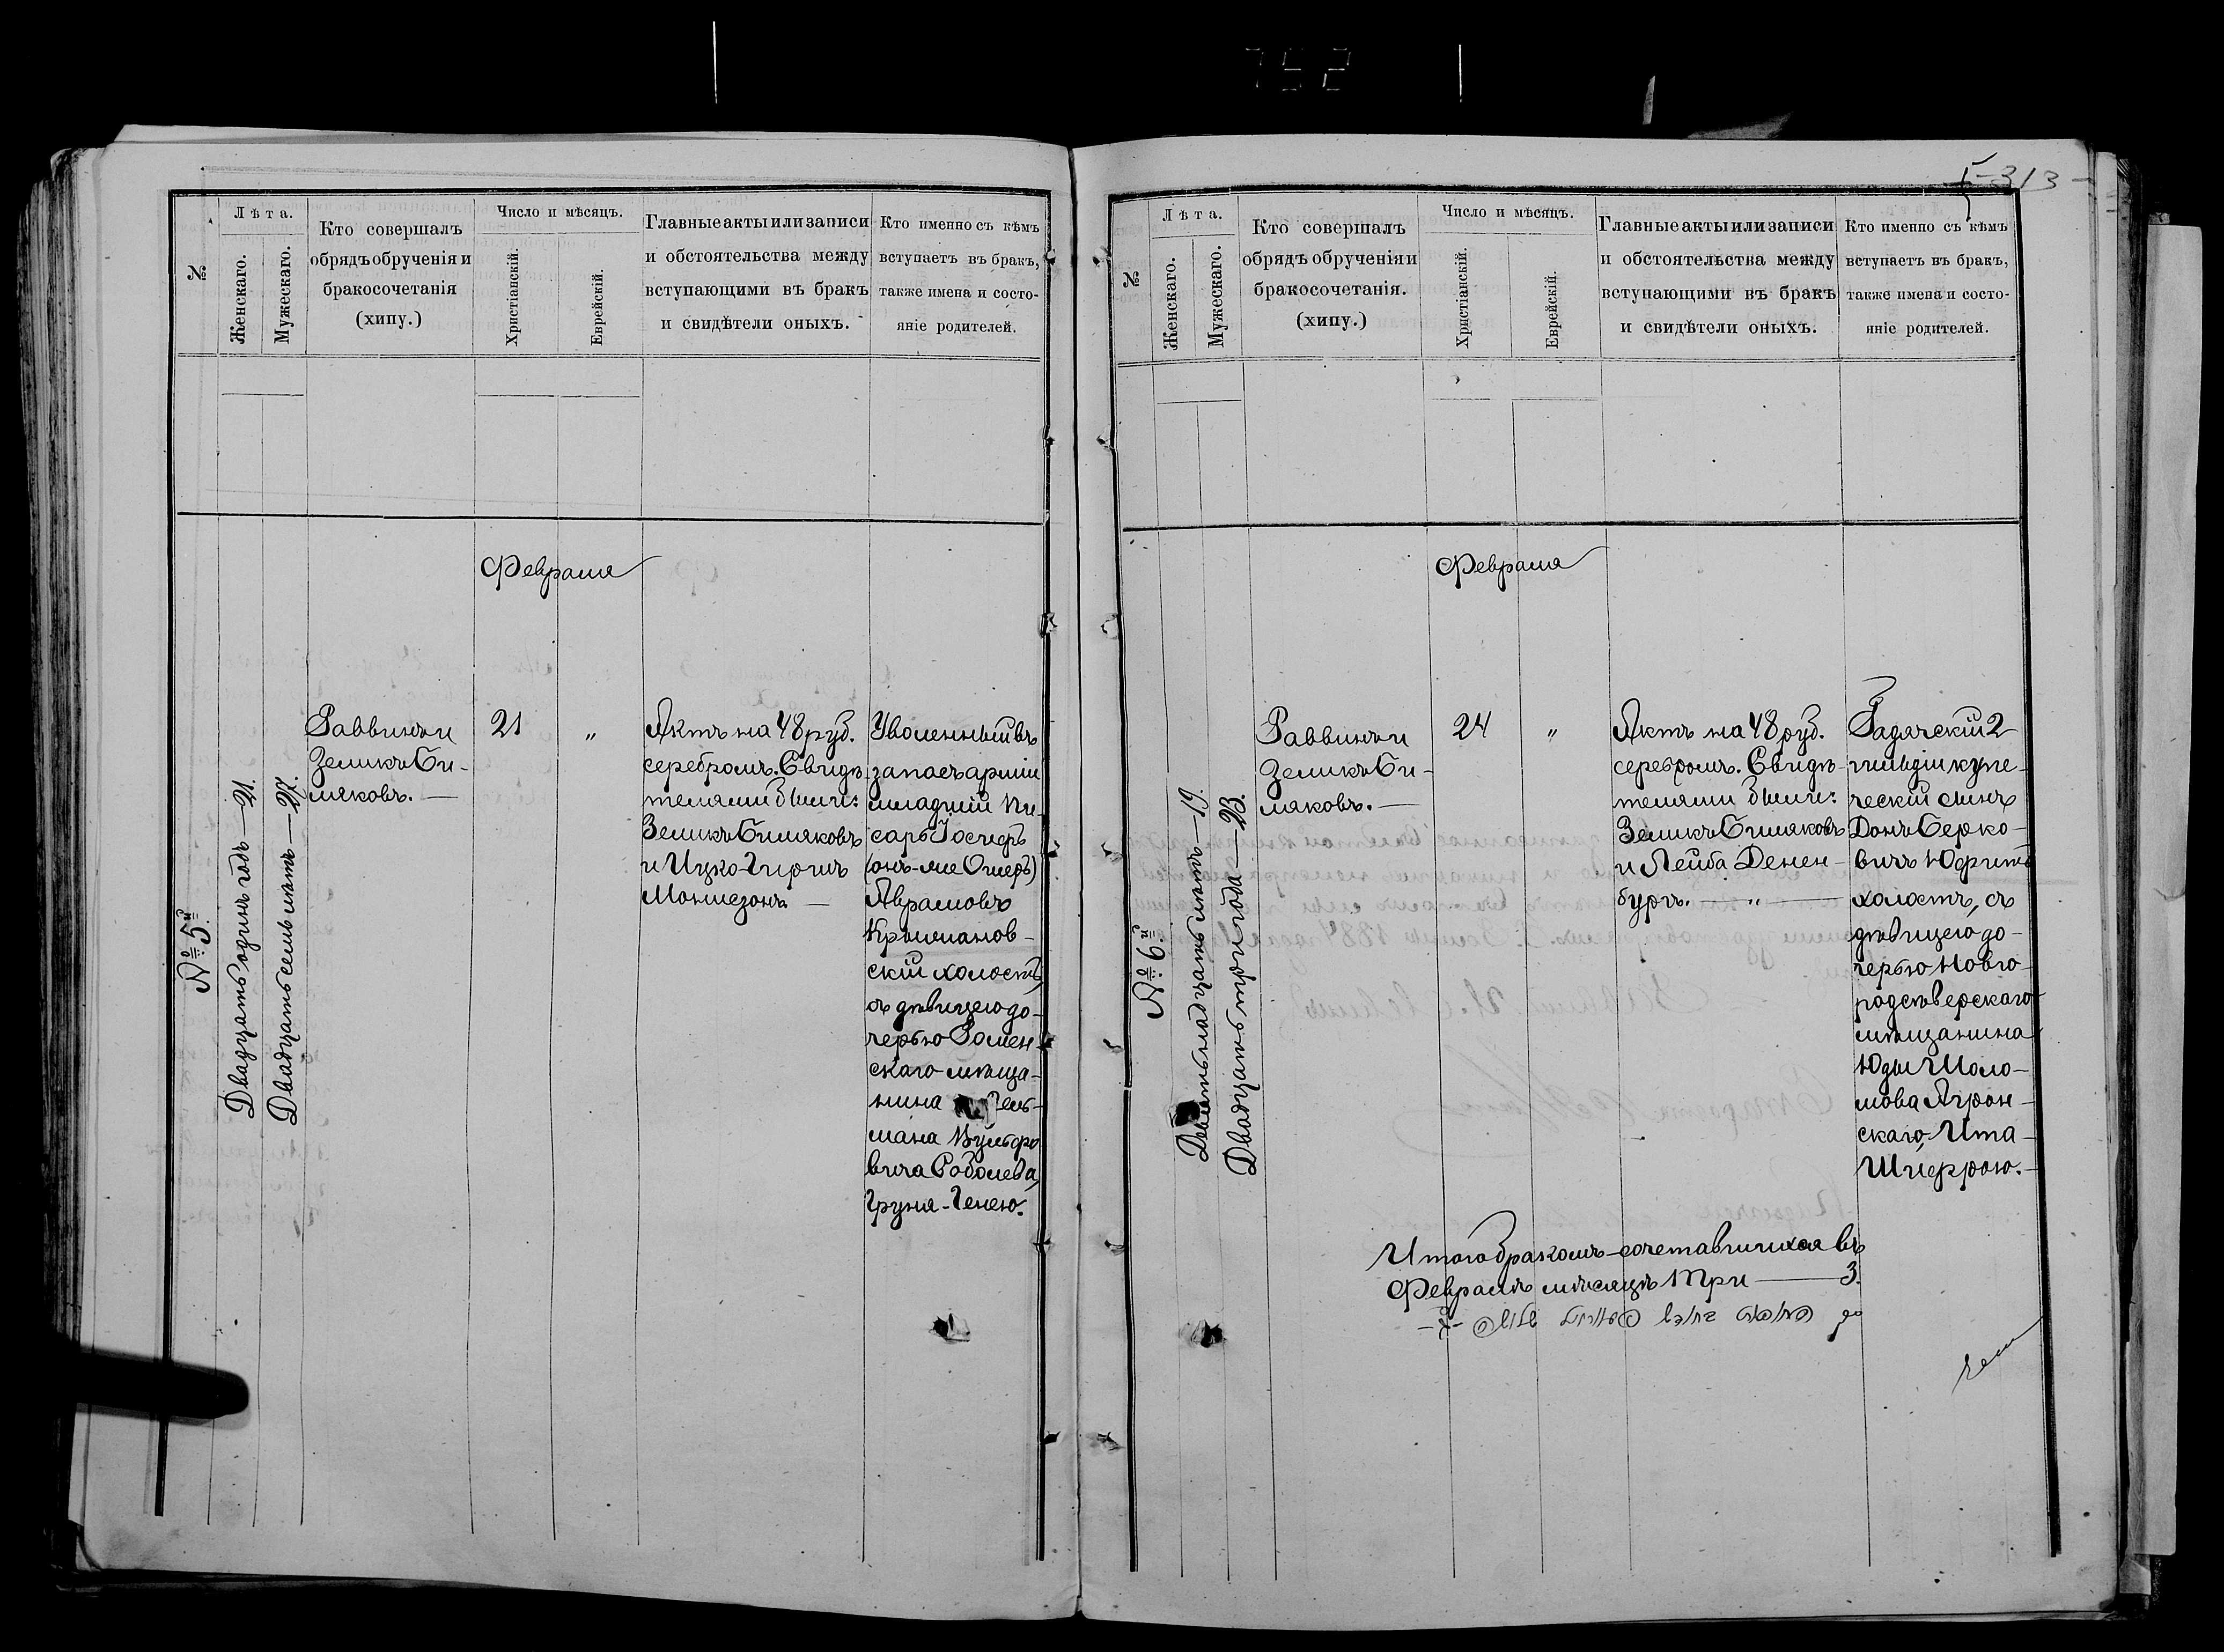 752
№
Лѣта.
Женскаго.
Мужескаго.
Кто совершалъ
обрядъ обрученія и
бракосочетанія
(хипу.)
Число и мѣсяцъ.
Христіанскій.
Еврейскій.
Главные акты или записи
и обстоятельства между
вступающими въ бракъ
и свидѣтели оныхъ.
Кто именно съ кѣмъ
вступаетъ въ бракъ,
также имена и состо-
яніе родителей.
Февраля
№ 5й
Двадцать одинъ годъ — 21.
Двадцать семь лѣтъ — 27.
Раввинъ и
Зеликъ Си-
маковъ. —
21
"
Актъ на 48 руб.
серебромъ. Свидѣ-
телями были:
Зеликъ Симаковъ
и Ицко-Гиршъ
Монтезонъ. —
Уволенный въ
запасъ арміи
младшій пи-
сарь Іосифъ
(онъ-же Осиеръ)
Аврамовъ
Крымчанов-
скій холостъ,
съ дѣвицею до-
черью Ромен
скаго мѣща-
нина Гель-
мана Вульфо
вича Соболева,
Груня-Генею.
313
№
Лѣта.
Женскаго.
Мужескаго.
Кто совершалъ
обрядъ обрученія и
бракосочетанія.
(хипу.)
Число и мѣсяцъ.
Христіанскій.
Еврейскій.
Главные акты или записи
и обстоятельства между
вступающими въ бракъ
и свидѣтели оныхъ.
Кто именно съ кѣмъ
вступаетъ въ бракъ,
также имена и состо-
яніе родителей.
Февраля
№ 6й
Девятнадцать лѣтъ — 19.
Двадцать три года — 23.
Раввинъ и
Зеликъ Си-
маковъ. —
24
"
Актъ на 48 руб.
серебромъ. Свидѣ-
телями были:
Зеликъ Симаковъ
и Лейба Денен-
бургъ. — " —
Гадячскій 2
гильдіи купе-
ческій сынъ
Донъ Берко-
вичъ Юфритъ
холостъ, съ
дѣвицею до-
черью Новго-
родсѣверскаго
мѣщанина
Юды Шоло-
мова Агрон-
скаго, Ита-
Шифрою. —
Итого бракомъ-сочетавшихся въ
Февралѣ мѣсяцѣ три — 3.